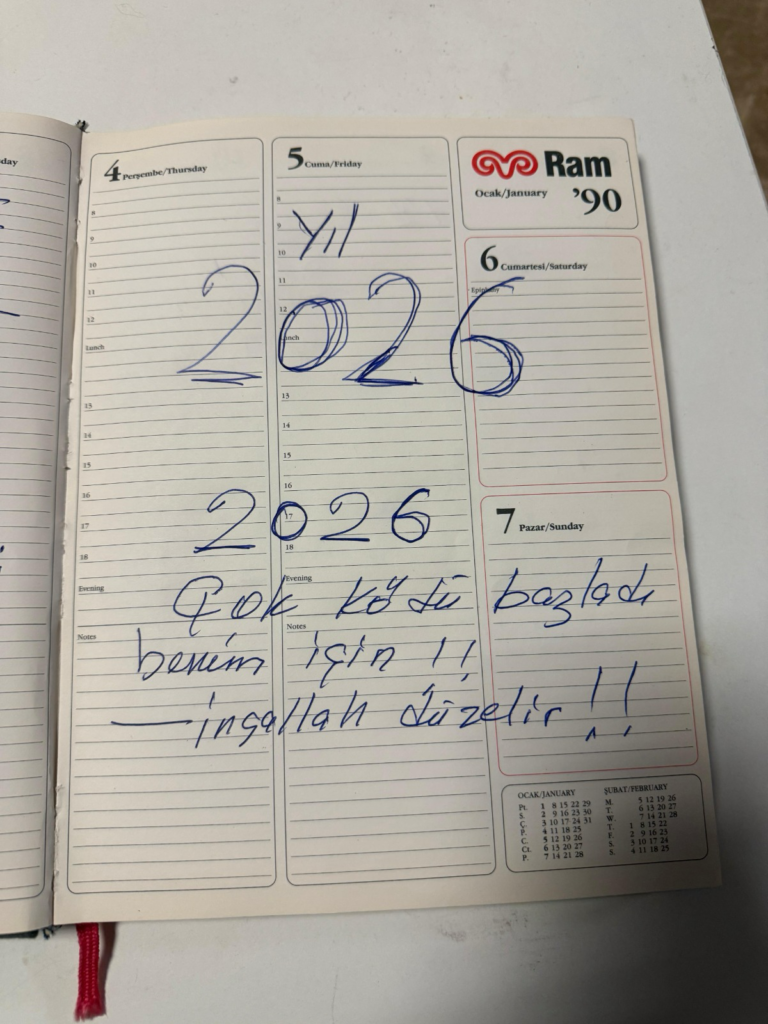 day
4 Perşembe/Thursday
8
9
10
11
12
Lunch
13
14
15
16
17
18
Evening
Notes
5 Cuma/Friday
8
9
10
11
12
Lunch
13
14
15
16
17
18
Evening
Notes
Ram
Ocak/January '90
6 Cumartesi/Saturday
Epiphany
7 Pazar/Sunday
Yıl
2026
2026
Çok ködü bazladı
benim için !!
— inşallah düzelir !!
OCAK/JANUARY
Pt. 1 8 15 22 29
S. 2 9 16 23 30
Ç. 3 10 17 24 31
P. 4 11 18 25
C. 5 12 19 26
Ct. 6 13 20 27
P. 7 14 21 28
ŞUBAT/FEBRUARY
M. 5 12 19 26
T. 6 13 20 27
W. 7 14 21 28
T. 1 8 15 22
F. 2 9 16 23
S. 3 10 17 24
S. 4 11 18 25